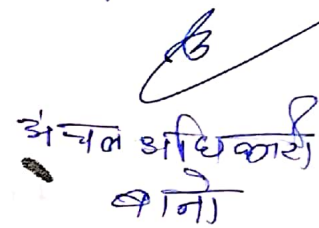 अंचल अधिकारी
बानो